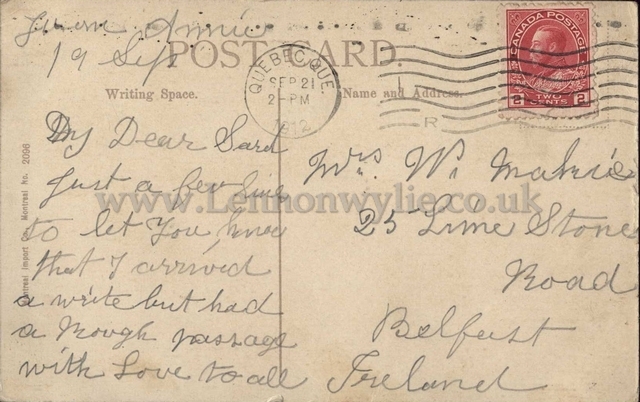 from Annie
19 Sept
POST CARD.
Writing Space.
Name and Address.
QUEBEC, QUE.
SEP 21
2-PM
1912
R
CANADA POSTAGE
2 TWO CENTS 2
My Dear
Just a few line
to let You know
that I arrived
a write but had
a Rough passage
with Love to all
Mrs. W.
25 Lime Stone
Road
Belfast
Ireland
Montreal Import Co., Montreal No. 2096
www.Lennonwylie.co.uk